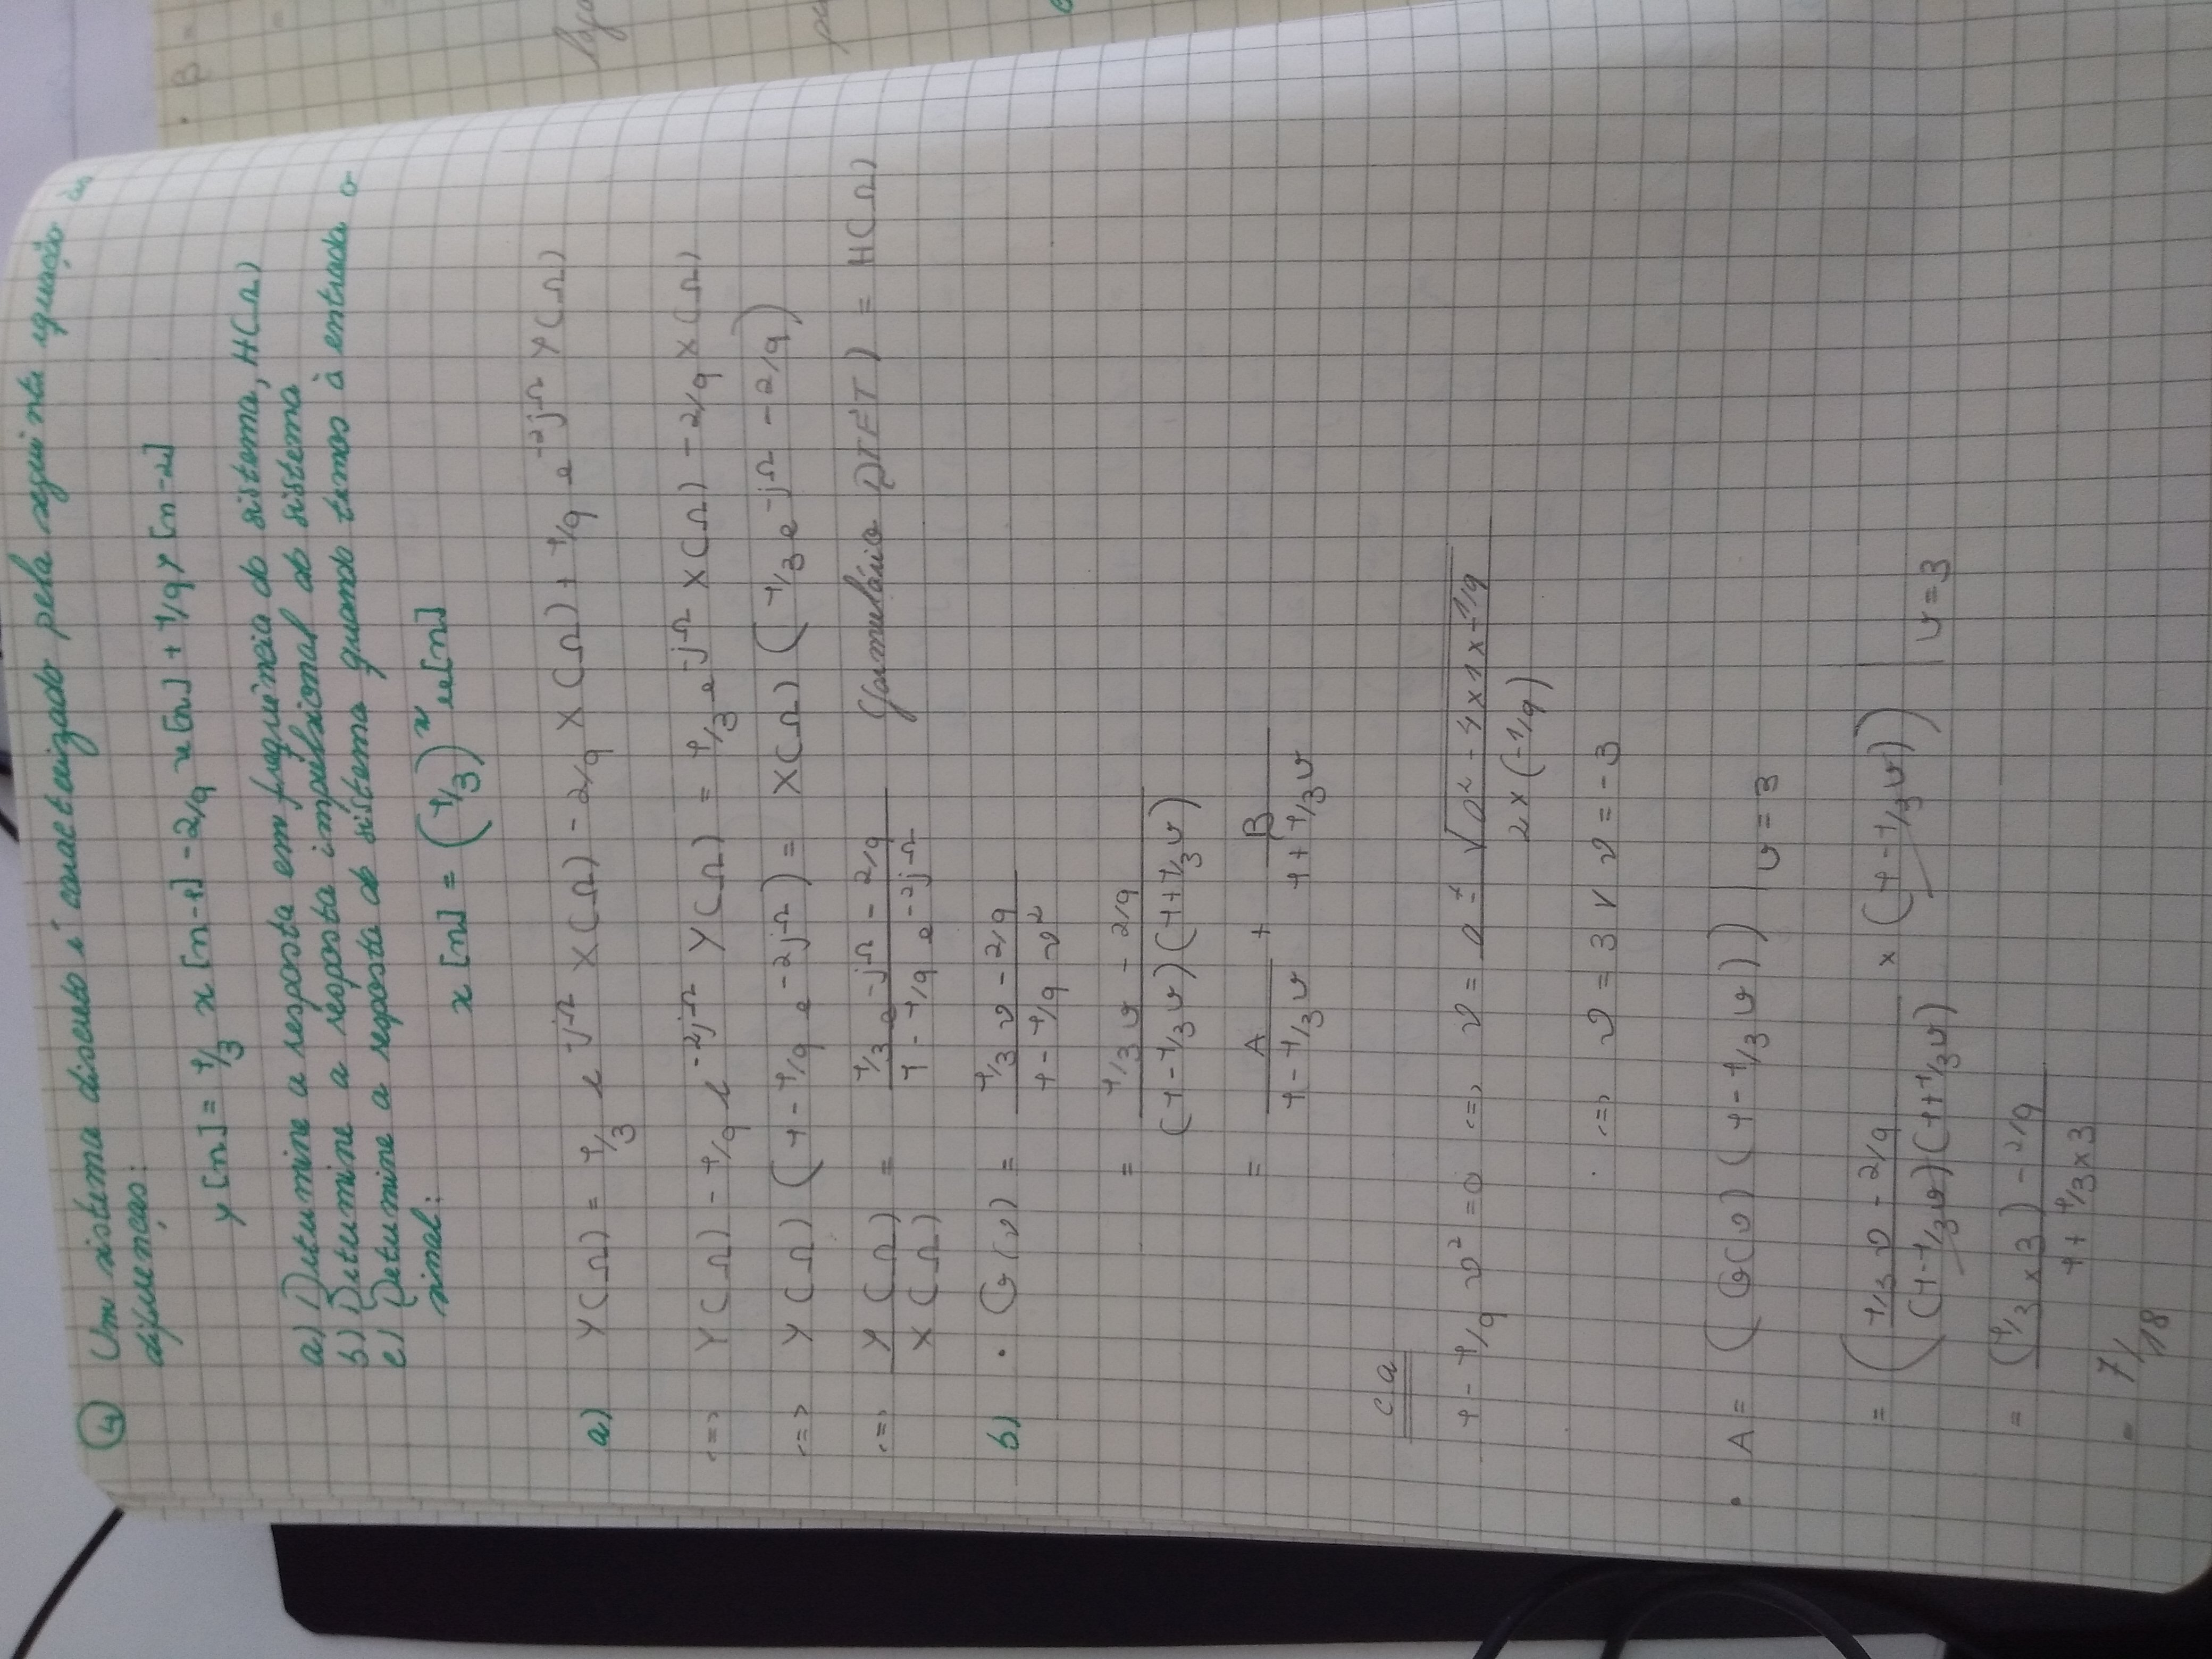 ④ Um sistema discreto é caracterizado pela seguinte equação às
diferenças:
y[n] = 1/3 x[n-1] - 2/9 x[n] + 1/9 y[n-2]
a) Determine a resposta em frequência do sistema, H(Ω)
b) Determine a resposta impulsional do sistema
c) Determine a resposta do sistema quando temos à entrada o
sinal:
x[n] = (1/3)^n u[n]
a) Y(Ω) = 1/3 e^{-jΩ} X(Ω) - 2/9 X(Ω) + 1/9 e^{-2jΩ} Y(Ω)
<=> Y(Ω) - 1/9 e^{-2jΩ} Y(Ω) = 1/3 e^{-jΩ} X(Ω) - 2/9 X(Ω)
<=> Y(Ω) (1 - 1/9 e^{-2jΩ}) = X(Ω) (1/3 e^{-jΩ} - 2/9)
<=> Y(Ω)/X(Ω) = (1/3 e^{-jΩ} - 2/9)/(1 - 1/9 e^{-2jΩ}) (formulário DTFT) = H(Ω)
b) • G(v) = (1/3 v - 2/9)/(1 - 1/9 v²)
= (1/3 v - 2/9)/((1 - 1/3 v)(1 + 1/3 v))
= A/(1 - 1/3 v) + B/(1 + 1/3 v)
c.a
1 - 1/9 v² = 0 <=> v = (0 ± √(0² - 4 x 1 x -1/9))/(2 x (-1/9))
<=> v = 3 ∨ v = -3
• A = (G(v) (1 - 1/3 v)) | v = 3
= ((1/3 v - 2/9)/((1 - 1/3 v)(1 + 1/3 v)) x (1 - 1/3 v)) | v = 3
= ((1/3 x 3) - 2/9)/(1 + 1/3 x 3)
= 7/18
• B =
=